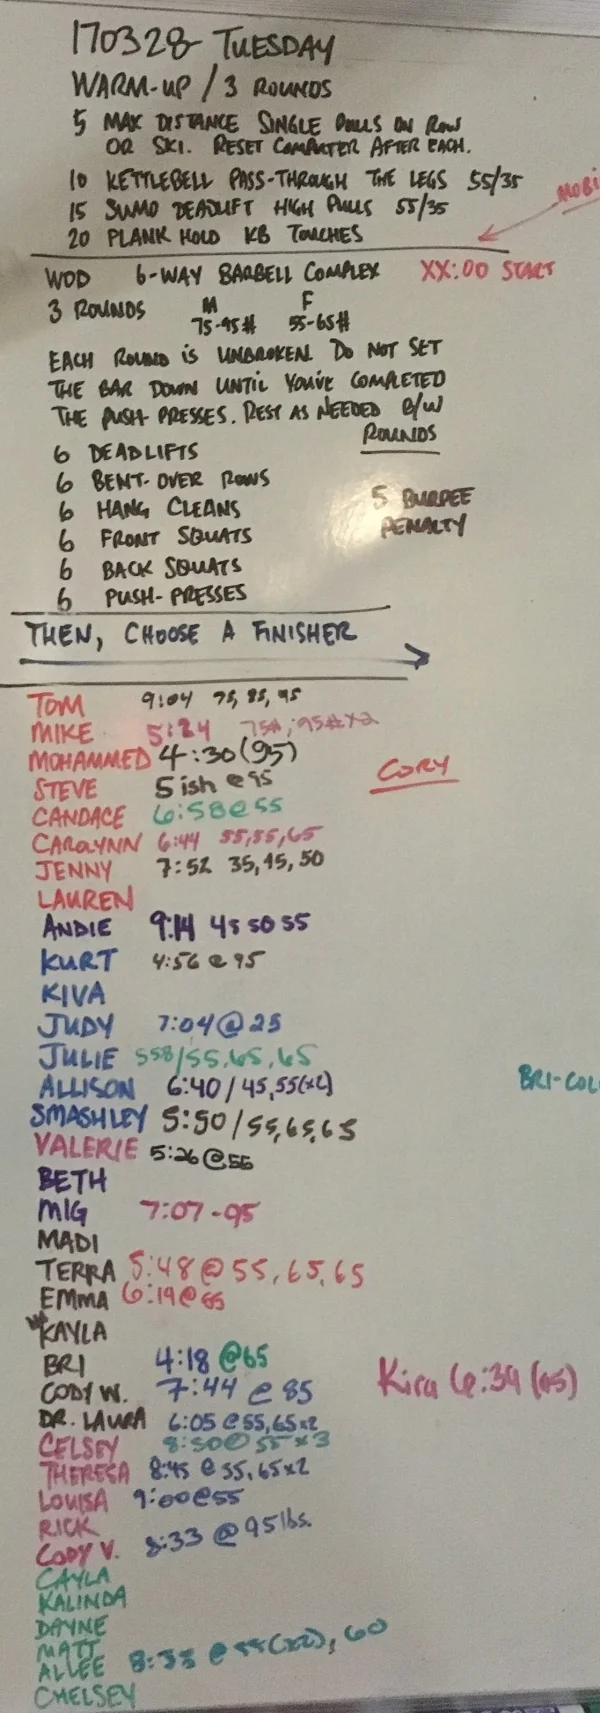 170328 TUESDAY
WARM-UP / 3 ROUNDS
5 MAX DISTANCE SINGLE PULLS ON ROW
OR SKI. RESET COMPUTER AFTER EACH.
10 KETTLEBELL PASS-THROUGH THE LEGS 55/35
15 SUMO DEADLIFT HIGH PULLS 55/35
20 PLANK HOLD KB TOUCHES
MOBI
WOD 6-WAY BARBELL COMPLEX XX:00 START
3 ROUNDS M F
75-95# 55-65#
EACH ROUND IS UNBROKEN. DO NOT SET
THE BAR DOWN UNTIL YOU'VE COMPLETED
THE PUSH-PRESSES. REST AS NEEDED B/W
ROUNDS
6 DEADLIFTS
6 BENT-OVER ROWS
6 HANG CLEANS
6 FRONT SQUATS
6 BACK SQUATS
6 PUSH-PRESSES
5 BURPEE
PENALTY
THEN, CHOOSE A FINISHER
TOM 9:04 75, 85, 95
MIKE 5:24 75#; 95#x2
MOHAMMED 4:30 (95)
STEVE 5ish @95
CORY
CANDACE 6:58@55
CAROLYNN 6:44 55,55,65
JENNY 7:52 35, 45, 50
LAUREN
ANDIE 9:14 45 50 55
KURT 4:56 @ 95
KIVA
JUDY 7:04@25
JULIE 558/55,65,65
ALLISON 6:40/45,55(x2)
BRI-COL
SMASHLEY 5:50/55,65,65
VALERIE 5:26@55
BETH
MIG 7:07-95
MADI
TERRA 5:48@55,65,65
EMMA 6:19@
KAYLA
BRI 4:18 @65
CODY W. 7:44 @ 85
Kira 6:39 (65)
DR. LAURA 6:05 @55,65x2
CELSEY 8:50@55x3
THERESA 8:45 @55,65x2
LOUISA 9:00@55
RICK
CODY V. 8:33 @95lbs.
CAYLA
KALINDA
DAYNE
MATT
ALLEE 8:35 @55(x2), 60
CHELSEY